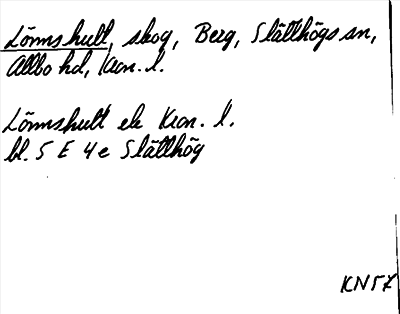 Lönnshult, skog, Berg, Slätthögs sn,
Allbo hd, Kron. l.
Lönnshult ek Kron. l.
bl. 5 E 4 e Slätthög
KN57